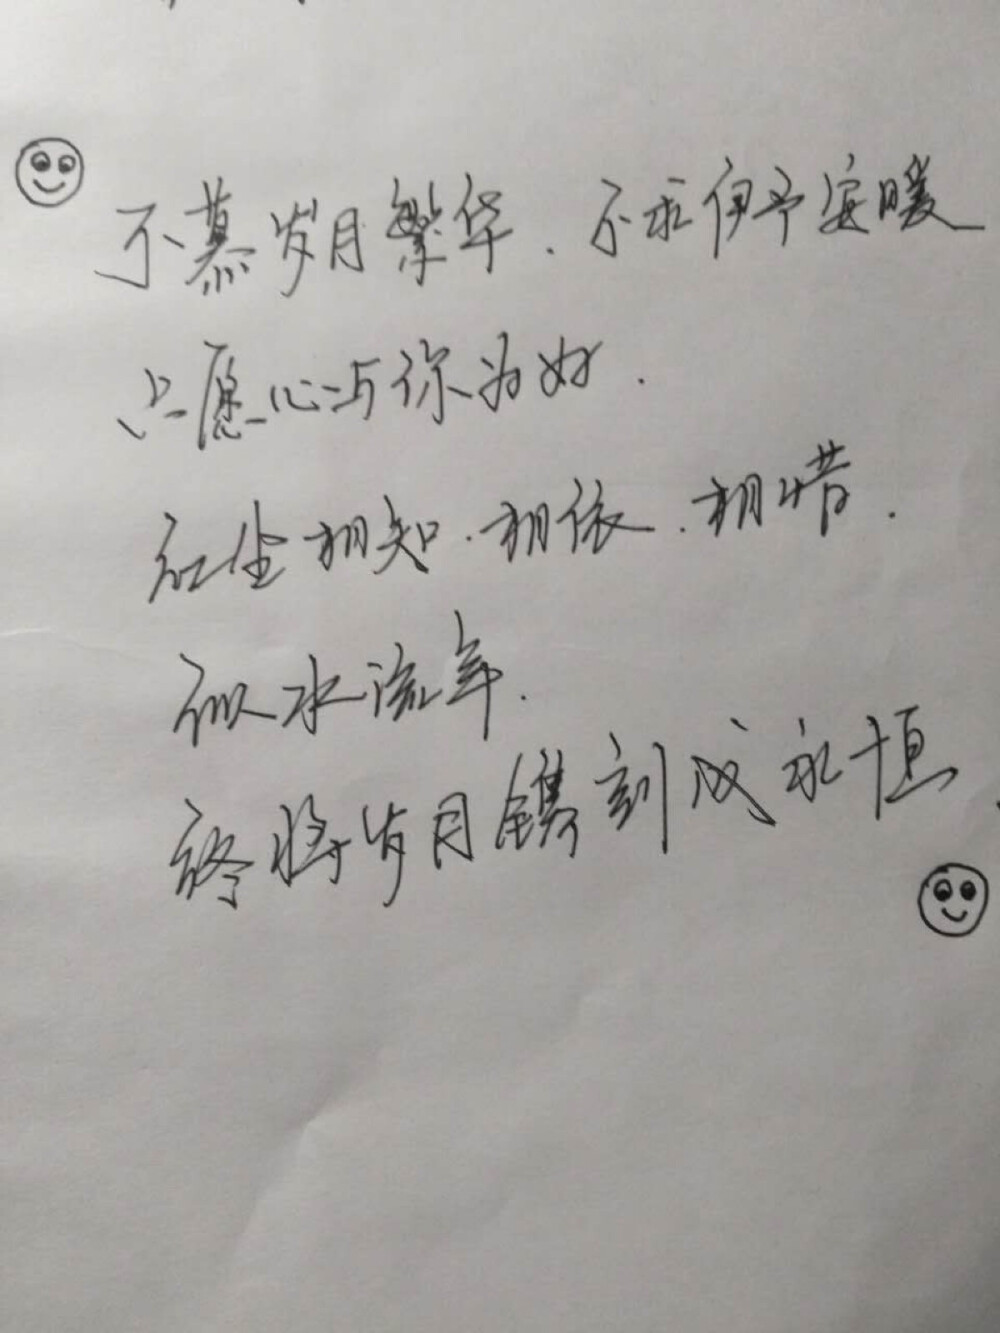 不慕岁月繁华.不求伊予安暖
只愿心与你为好.
红尘相知.相依.相惜.
似水流年.
终将岁月镌刻成永恒.